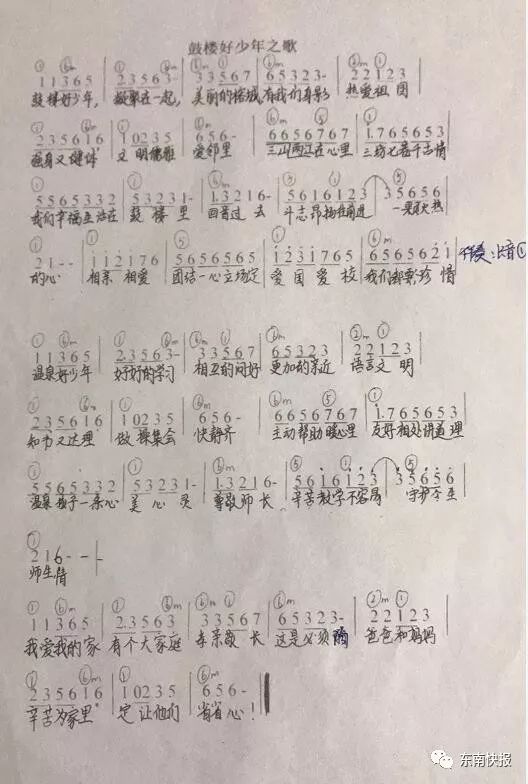 鼓楼好少年之歌
① ⑥m ① ⑥m ⑥m ① ⑥m ②m ①
1 1 3 6 5 | 2 3 5 6 3- | 3 3 5 6 7 | 6 5 3 2 3- | 2 2 1 2 3
鼓楼好少年, 凝聚在一起, 美丽的榕城, 有我们身影 热爱祖国
2 3 5 6 1 6 | 1 0 2 3 5 | 6 5 6- | 6 6 5 6 7 6 7 | 1. 7 6 5 6 5 3
强身又健体 文明儒雅 爱邻里 三山两江在心里 三坊七巷千古情
5 5 6 5 3 3 3 2 | 5 3 2 3 1- | 1. 3 2 1 6- | 5 6 1 6 1 2 3 | 3 5 6 5 6
我们幸福生活在 鼓楼里 回首过去 斗志昂扬在前进 一颗火热
2 1 - - | 1 1 2 1 7 6 | 5 6 5 6 5 6 5 | 1 2 3 1 7 6 5 | 6 5 6 5 6 2 1
的心 相亲相爱 团结一心立场定 爱国爱校 我们都要珍惜
① ⑥m ① ⑥m ⑥m ① ⑥m ②m ①
1 1 3 6 5 | 2 3 5 6 3- | 3 3 5 6 7 | 6 5 3 2 3 | 2 2 1 2 3
温泉好少年 好好的学习 相互的问好 更加的亲近 语言文明
2 3 5 6 1 6 | 1 0 2 3 5 | 6 5 6- | 6 6 5 6 7 6 7 | 1. 7 6 5 6 5 3
知书又达理 做操集会 快静齐 主动帮助暖心里 友好相处讲道理
5 5 6 5 3 3 3 2 | 5 3 2 3 1- | 1. 3 2 1 6- | 5 6 1 6 1 2 3 | 3 5 6 5 6
温泉孩子一条心 美心灵 尊敬师长 辛苦教学不容易 守护今生
①
2 1 6 - - |
师生情
① ⑥m ① ⑥m ⑥m ① ⑥m ②m ①
1 1 3 6 5 | 2 3 5 6 3 | 3 3 5 6 7 | 6 5 3 2 3- | 2 2 1 2 3
我爱我的家 有个大家庭 孝亲敬长 这是必须 爸爸和妈妈
2 3 5 6 1 6 | 1 0 2 3 5 | 6 5 6-
辛苦为家里 定让他们 省省心!
东南快报